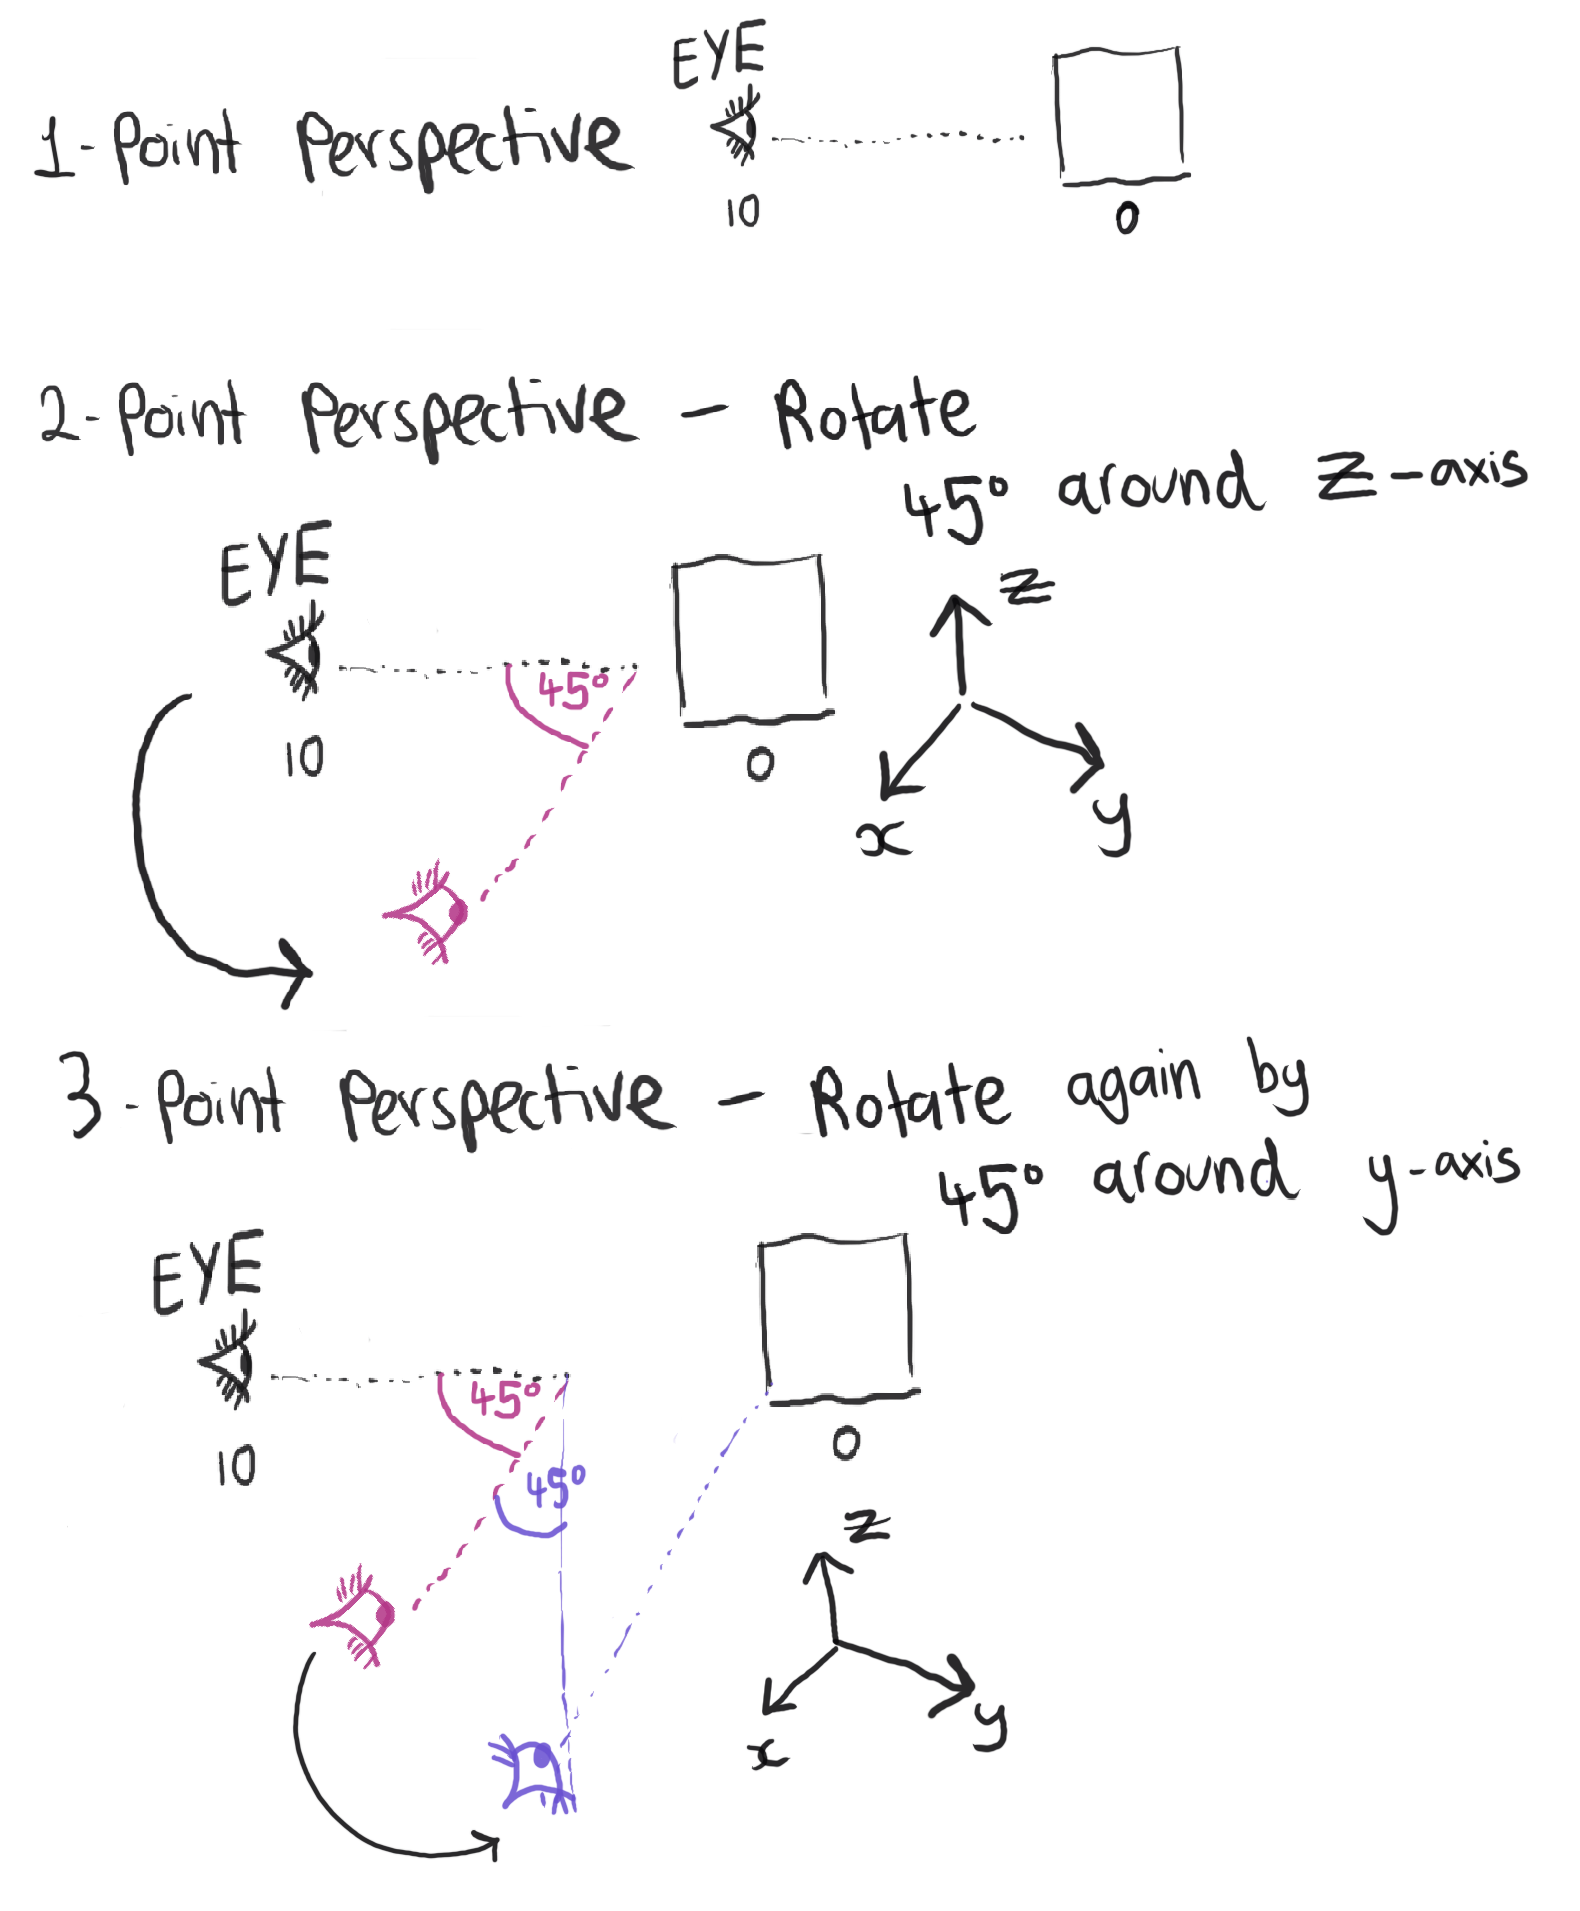 EYE
1-Point Perspective
10
0
2-Point Perspective - Rotate
45° around z-axis
EYE
z
45°
10
0
x
y
3-Point Perspective - Rotate again by
45° around y-axis
EYE
45°
10
0
45°
z
y
x